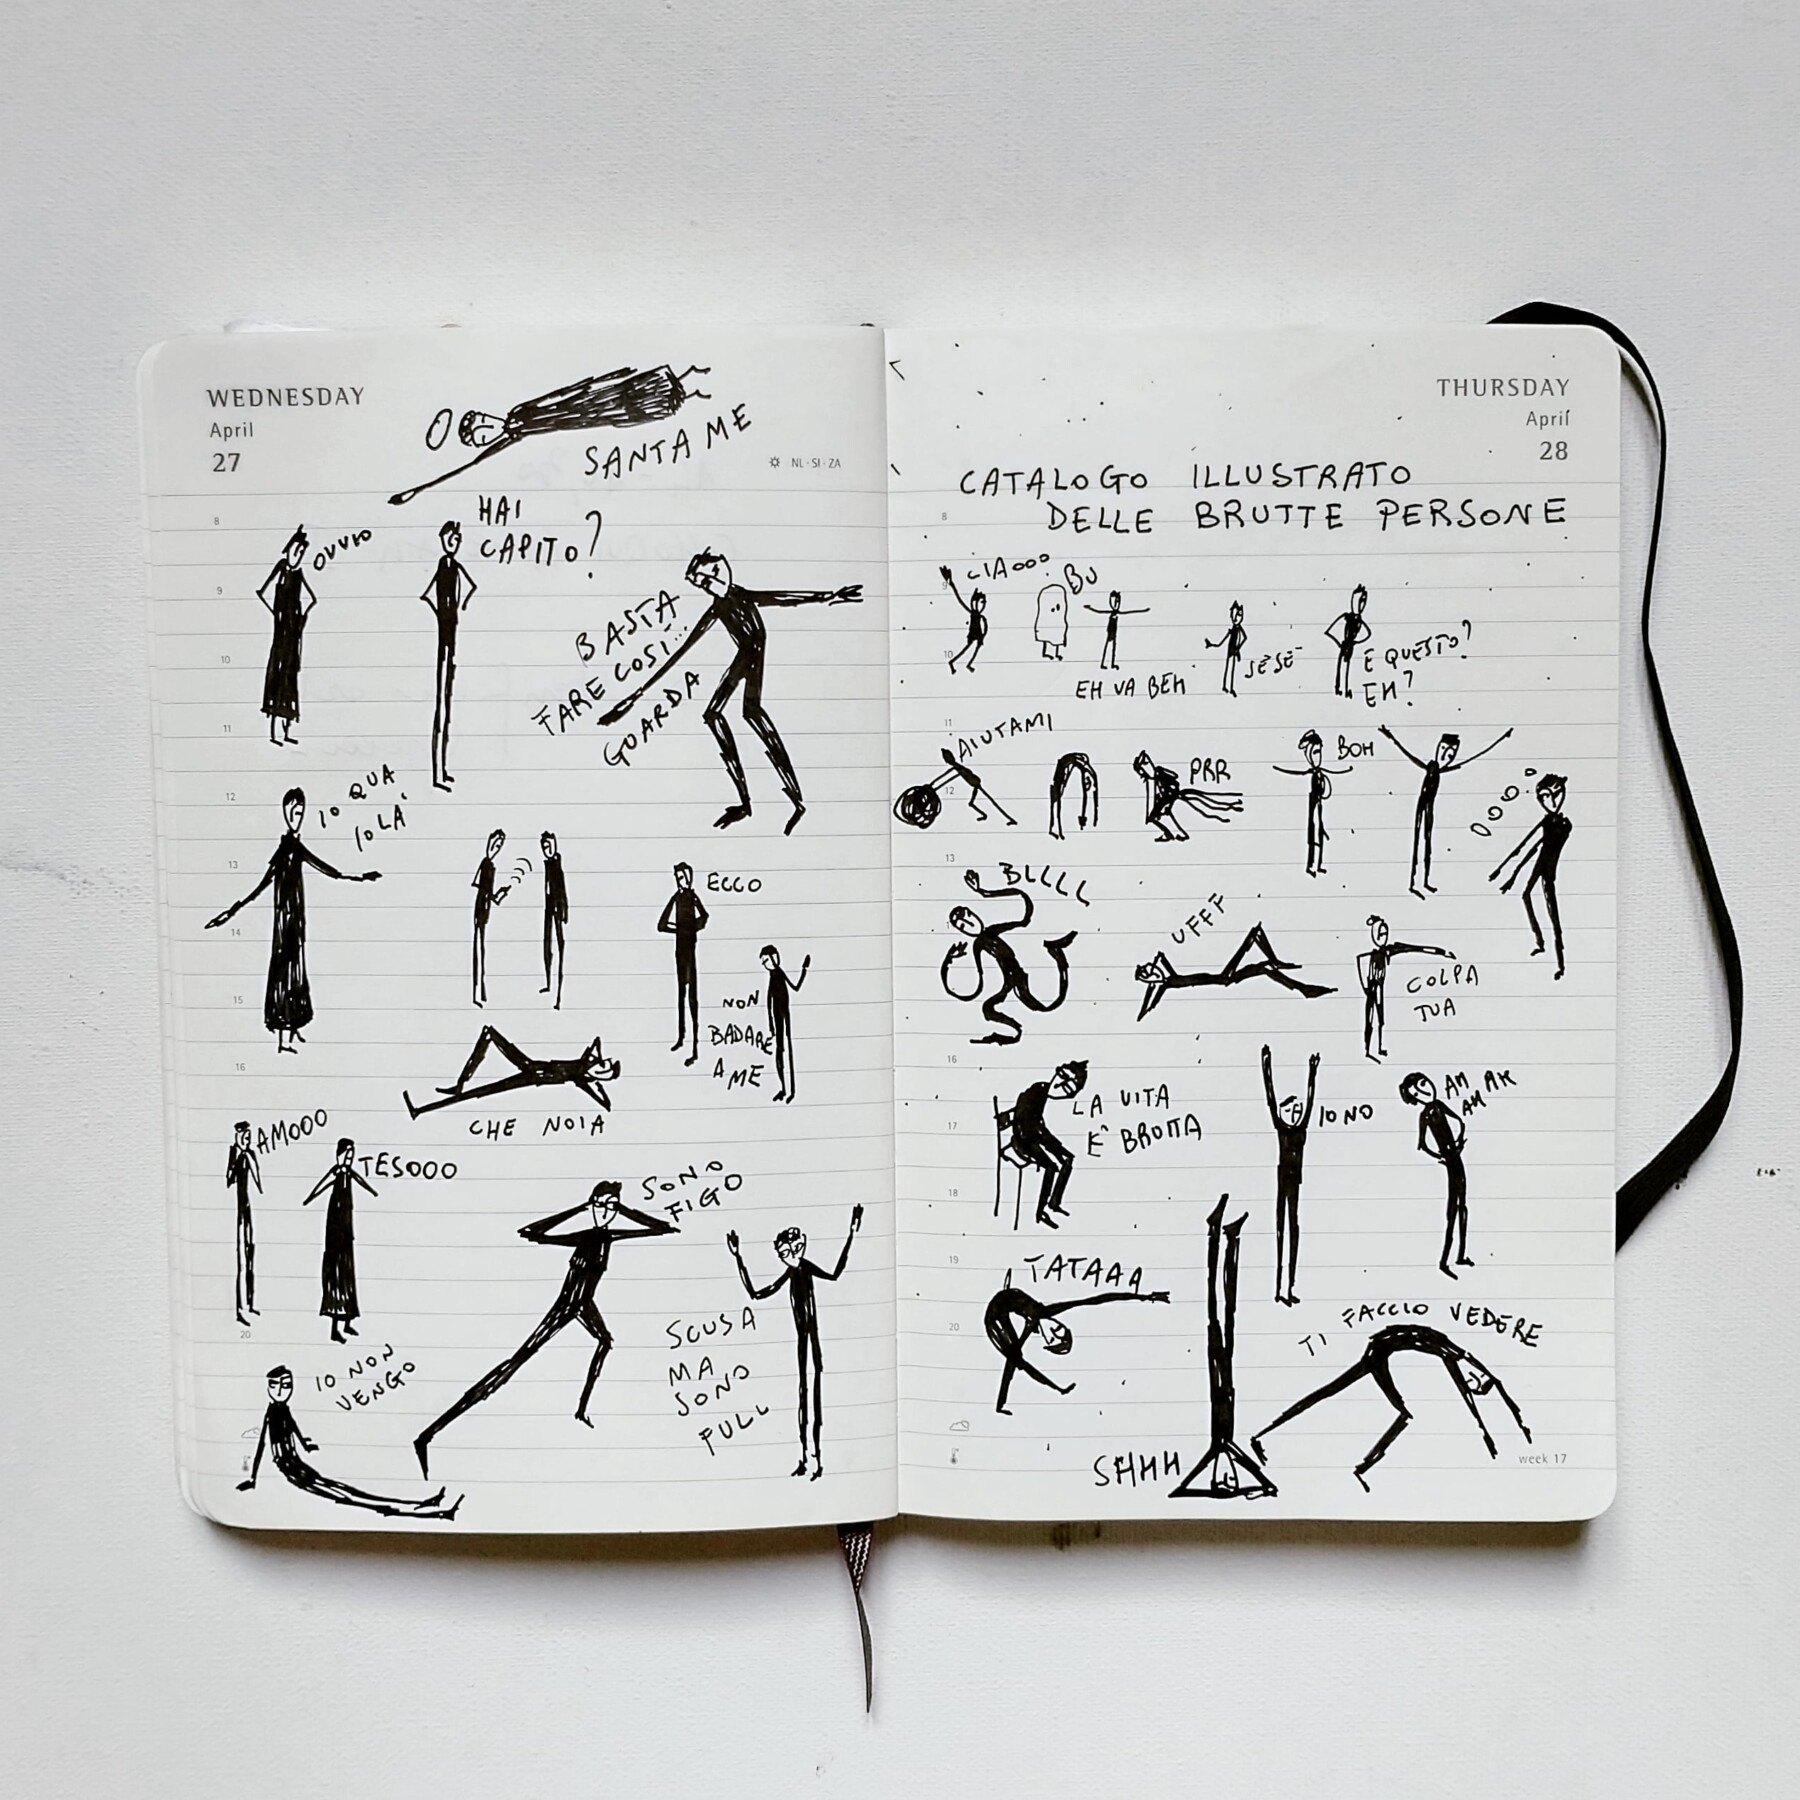 WEDNESDAY
April
27
SANTA ME
NL·SI·ZA
OVVIO
HAI
CAPITO?
BASTA
FARE COSÌ...
GUARDA
IO QUA
IO LÀ
ECCO
NON
BADARE
A ME
CHE NOIA
AMOOO
TESOOO
SONO
FIGO
SCUSA
MA
SONO
FULL
IO NON
VENGO
8
9
10
11
12
13
14
15
16
20
THURSDAY
April
28
CATALOGO ILLUSTRATO
DELLE BRUTTE PERSONE
CIAOOO
BU
EH VA BEH
SÈ SÈ
E QUESTO?
EH?
AIUTAMI
PRR
BOH
BLLLL
UFFF
COLPA
TUA
LA VITA
È BRUTTA
IO NO
AH AH
AH AH
TATAAA
SHHH
TI FACCIO VEDERE
8
9
10
11
12
13
16
17
18
19
20
week 17